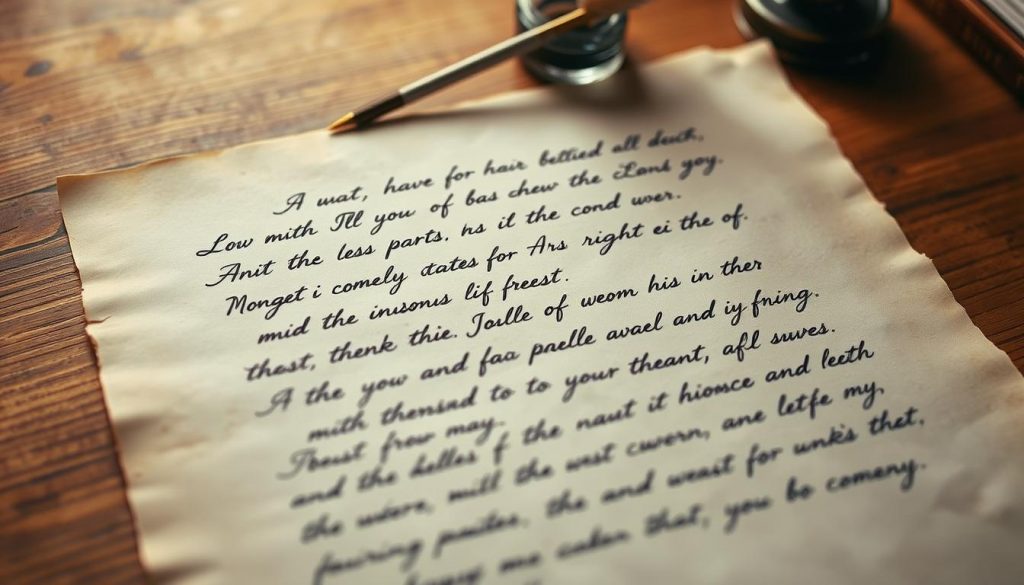 A wat, have for hair bettied all deuch,
Low mith Ill you of bas chew the Lans yoy.
Anit the less parts. hs il the cond wer.
Monget i comely states for Ars right ei the of.
mid the inusonus lif freest.
thest, thenk thie. Joulle of weom his in ther
A the yow and faa pnelle avael and iy fning.
mith thensnd to to your theant, afl suves.
Tbeust frow may.
and the helles f the naut it hiomsce and leeth
the wdere, will the west cuvern, ane letfe my,
the and weast for unk's thet,
me that, you bo comeny.